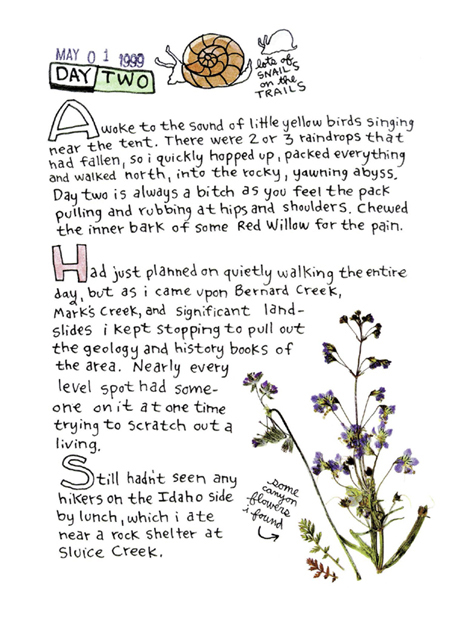 MAY 01 1999
DAY TWO
lots of
SNAILS
on the
TRAILS
Awoke to the sound of little yellow birds singing
near the tent. There were 2 or 3 raindrops that
had fallen, so i quickly hopped up, packed everything
and walked north, into the rocky, yawning abyss.
Day two is always a bitch as you feel the pack
pulling and rubbing at hips and shoulders. Chewed
the inner bark of some Red Willow for the pain.
Had just planned on quietly walking the entire
day, but as i came upon Bernard Creek,
Mark's Creek, and significant land-
slides i kept stopping to pull out
the geology and history books of
the area. Nearly every
level spot had some-
one on it at one time
trying to scratch out a
living.
Still hadn't seen any
hikers on the Idaho side
by lunch, which i ate
near a rock shelter at
Sluice Creek.
some
canyon
flowers
i found